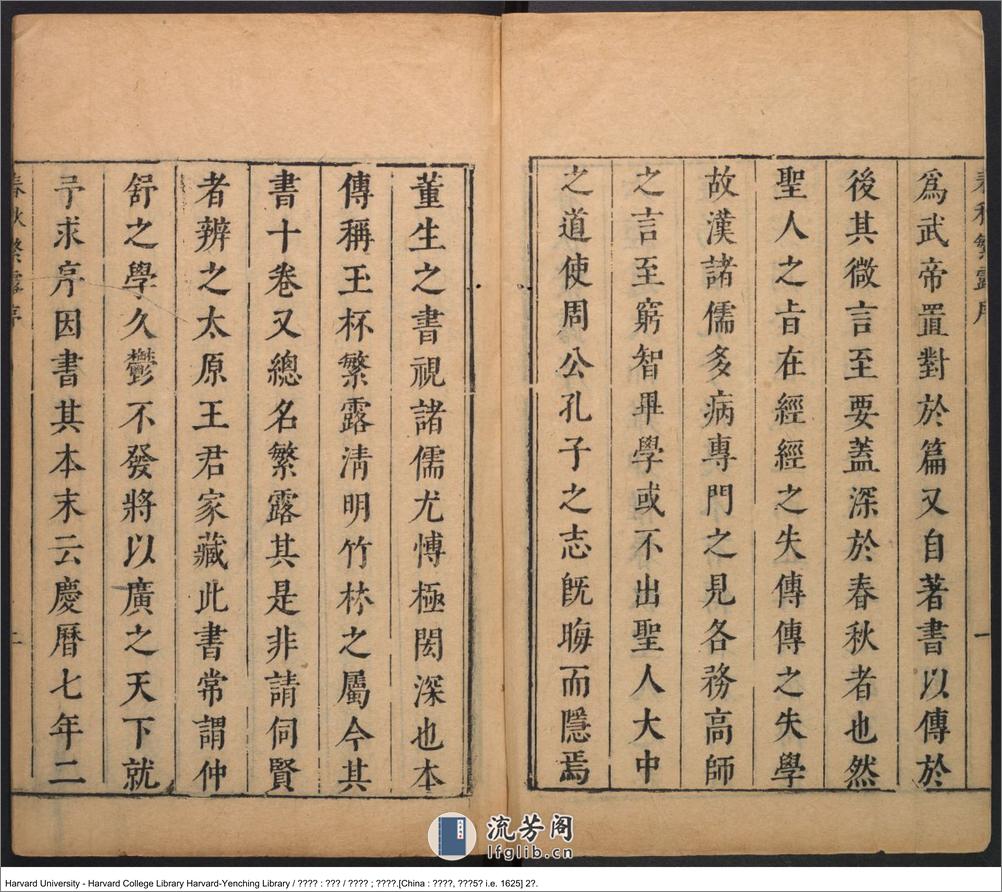 春秋繁露序
一
爲武帝置對於篇又自著書以傳於
後其微言至要蓋深於春秋者也然
聖人之旨在經經之失傳傳之失學
故漢諸儒多病專門之見各務高師
之言至窮智畢學或不出聖人大中
之道使周公孔子之志旣晦而隱焉
董生之書視諸儒尤愽極閎深也本
傳稱玉杯繁露淸明竹林之屬今其
書十卷又總名繁露其是非請伺賢
者辨之太原王君家藏此書常謂仲
舒之學久鬱不發將以廣之天下就
予求序因書其本末云慶曆七年二
春秋繁露序
二
流芳阁
lfglib.cn
Harvard University - Harvard College Library Harvard-Yenching Library / ???? : ??? / ???? ; ????.[China : ????, ???5? i.e. 1625] 2?.